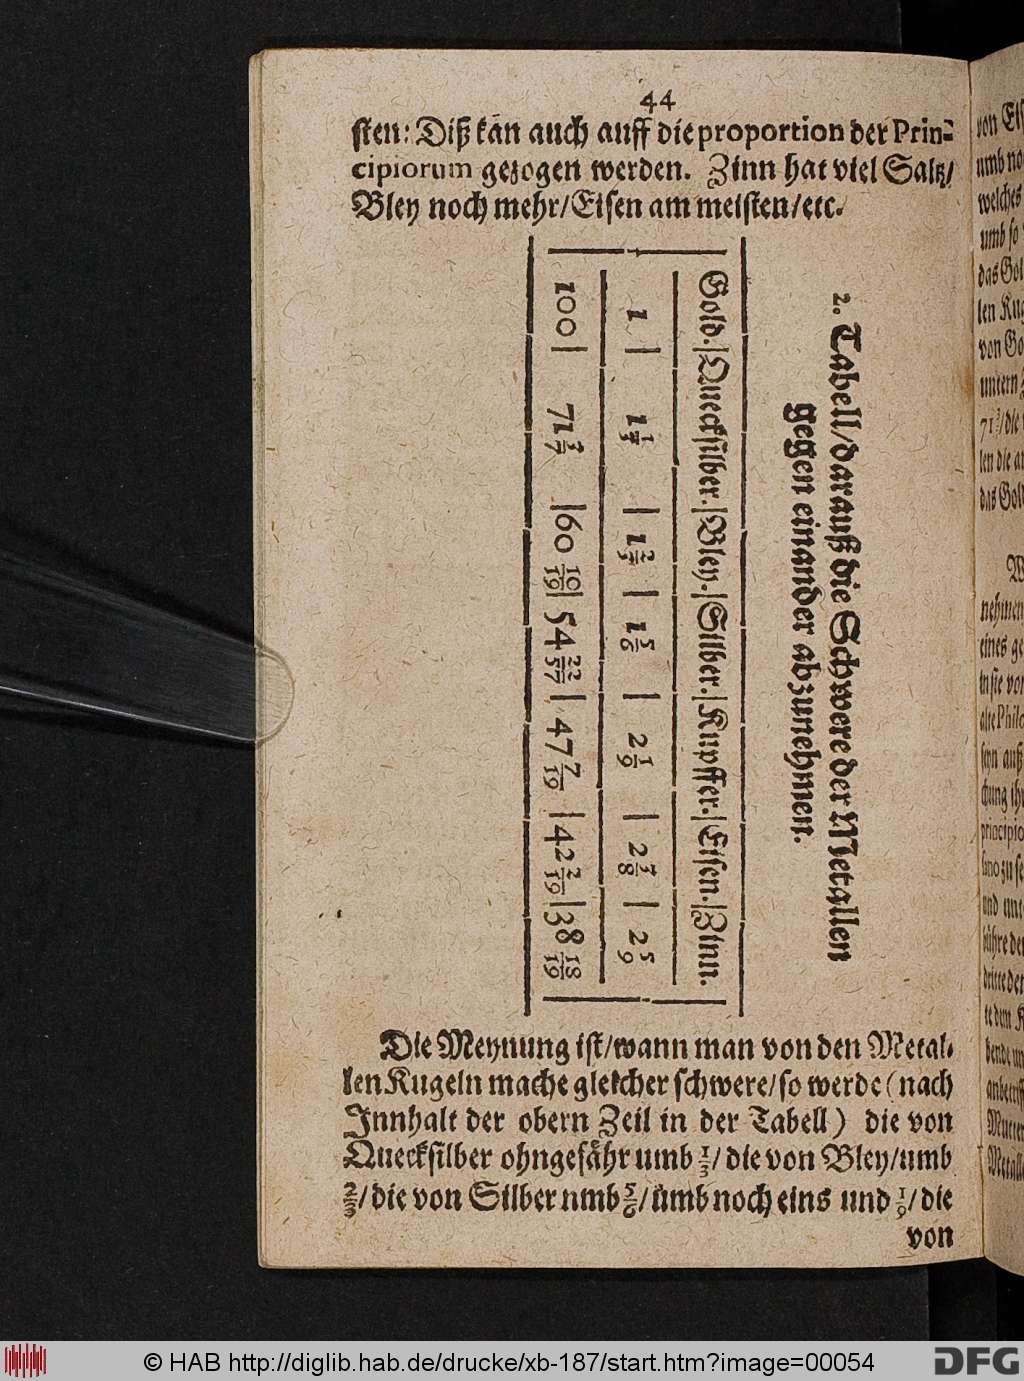 44
sten: Diß kan auch auff die proportion der Prin-
cipiorum gezogen werden. Zinn hat viel Saltz/
Bley noch mehr/Eisen am meisten/etc.
2. Tabell/darauß die Schwere der Metallen
gegen einander abzunehmen.
Gold.|Quecksilber.|Bley.|Silber.|Kupffer.|Eisen.|Zinn.
1 | 1 1/3 | 1 2/3 | 1 5/6 | 2 1/9 | 2 3/8 | 2 5/9
100| 71 3/7 |60 10/19| 54 22/57| 47 7/19 |42 2/19|38 18/19
Die Meynung ist/wann man von den Metal-
len Kugeln mache gleicher schwere/so werde (nach
Innhalt der obern Zeil in der Tabell) die von
Quecksilber ohngefähr umb 1/3/ die von Bley/umb
2/3/die von Silber umb 5/6/umb noch eins und 1/9/ die
von
von Eis
umb no
welches
umb so
das Gol
len Kug
von Go
untern
71 3/7/die
len die a
das Gol
nehmen
eines ge
alte Philo
seyn auß
chung ih
principio
und unt
dritte der
Metall
© HAB http://diglib.hab.de/drucke/xb-187/start.htm?image=00054
DFG